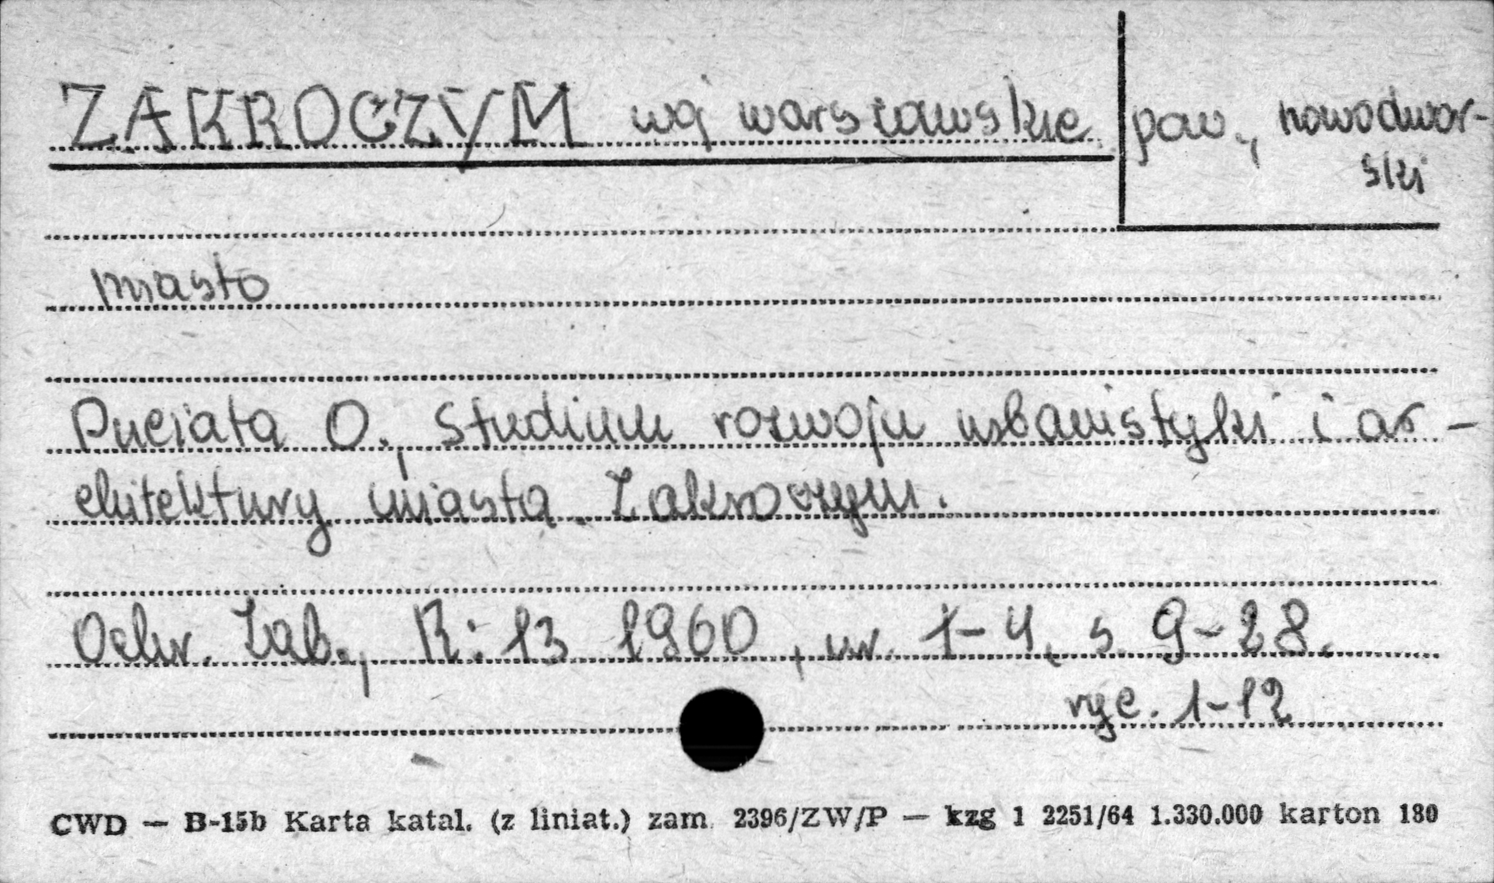 ZAKROCZYM woj warszawskie pow., nowodwor-
ski
miasto
Puciata O., Studium rozwoju urbanistyki i ar-
chitektury miasta Zakroczym.
Ochr. Zab., R: 13 1960, nr. 1-4, s. 9-28.
ryc. 1-12
CWD — B-15b Karta katal. (z liniat.) zam. 2396/ZW/P — kzg 1 2251/64 1.330.000 karton 180